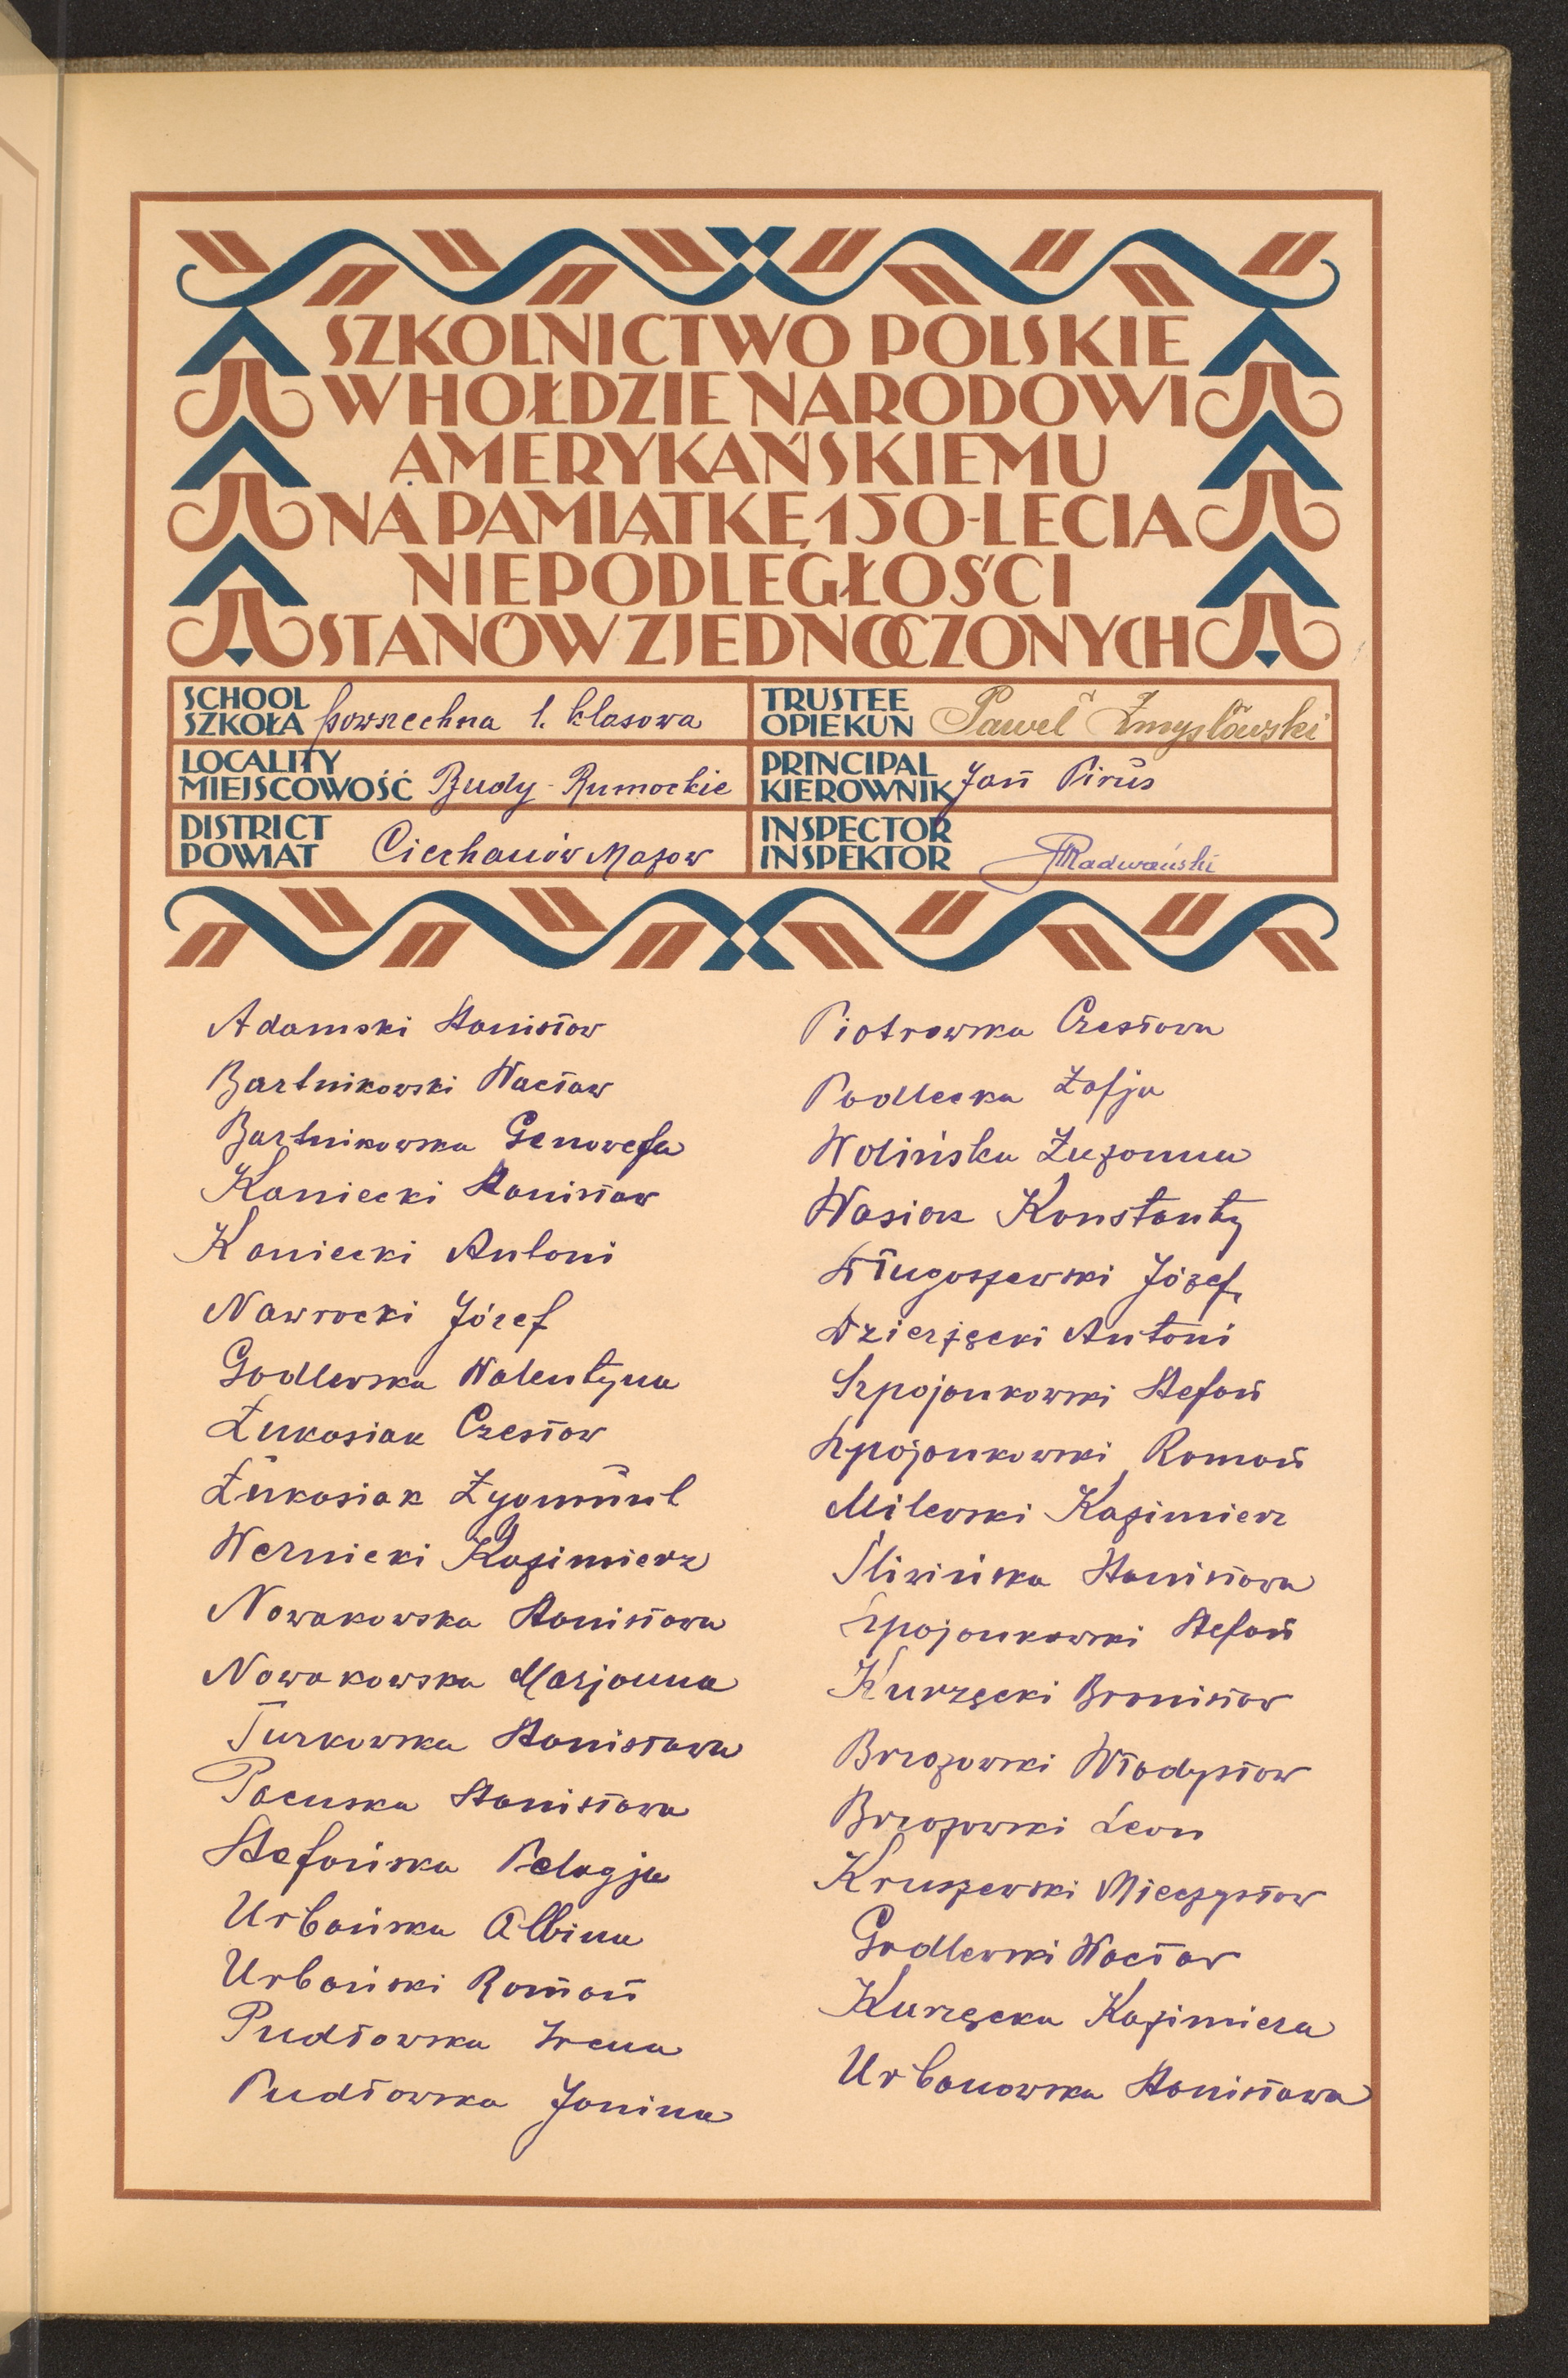 SZKOLNICTWO POLSKIE
W HOŁDZIE NARODOWI
AMERYKAŃSKIEMU
NA PAMIĄTKĘ 150-LECIA
NIEPODLEGŁOŚCI
STANÓW ZJEDNOCZONYCH
SCHOOL
SZKOŁA powszechna 1. klasowa
TRUSTEE
OPIEKUN Paweł Zmysłowski
LOCALITY
MIEJSCOWOŚĆ Budy-Rumockie
PRINCIPAL
KIEROWNIK Jan Pirus
DISTRICT
POWIAT Ciechanów Mazow
INSPECTOR
INSPEKTOR Radwański
Adamski Stanisław
Bartnikowski Wacław
Bartnikowska Genowefa
Kaniecki Stanisław
Kaniecki Antoni
Nawrocki Józef
Godlewska Walentyna
Łukasiak Czesław
Łukasiak Zygmunt
Wernicki Kazimierz
Nowakowska Stanisława
Nowakowska Marjanna
Turkowska Stanisława
Pacuska Stanisława
Stefańska Pelagja
Urbańska Albina
Urbański Roman
Pudłowska Irena
Pudłowska Janina
Piotrowska Czesława
Podlecka Zofja
Wolińska Zuzanna
Wasiak Konstanty
Długoszewski Józef
Dzierzęcki Antoni
Szpojankowski Stefan
Szpojankowski Roman
Milewski Kazimierz
Śliwińska Stanisława
Szpojankowski Stefan
Kurzęcki Bronisław
Brzozowski Władysław
Brzozowski Leon
Kruszewski Mieczysław
Godlewski Wacław
Kurzęcka Kazimiera
Urbanowska Stanisława